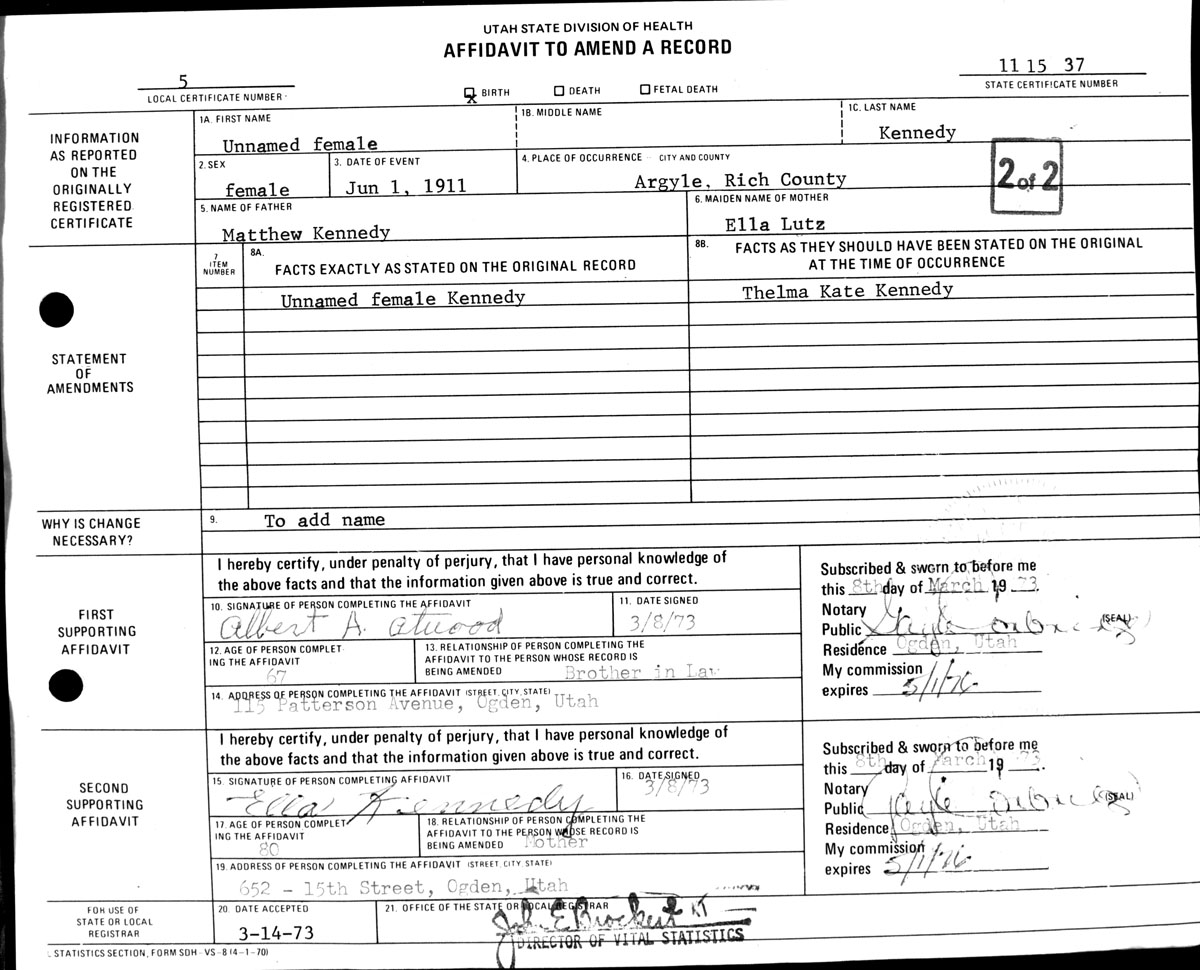 UTAH STATE DIVISION OF HEALTH
AFFIDAVIT TO AMEND A RECORD
5
LOCAL CERTIFICATE NUMBER
X BIRTH
DEATH
FETAL DEATH
11 15 37
STATE CERTIFICATE NUMBER
INFORMATION
AS REPORTED
ON THE
ORIGINALLY
REGISTERED
CERTIFICATE
1A. FIRST NAME
Unnamed female
1B. MIDDLE NAME
1C. LAST NAME
Kennedy
2. SEX
female
3. DATE OF EVENT
Jun 1, 1911
4. PLACE OF OCCURRENCE - CITY AND COUNTY
Argyle, Rich County
2 of 2
5. NAME OF FATHER
Matthew Kennedy
6. MAIDEN NAME OF MOTHER
Ella Lutz
STATEMENT
OF
AMENDMENTS
7
ITEM
NUMBER
8A.
FACTS EXACTLY AS STATED ON THE ORIGINAL RECORD
8B. FACTS AS THEY SHOULD HAVE BEEN STATED ON THE ORIGINAL
AT THE TIME OF OCCURRENCE
Unnamed female Kennedy
Thelma Kate Kennedy
WHY IS CHANGE
NECESSARY?
9. To add name
FIRST
SUPPORTING
AFFIDAVIT
I hereby certify, under penalty of perjury, that I have personal knowledge of
the above facts and that the information given above is true and correct.
10. SIGNATURE OF PERSON COMPLETING THE AFFIDAVIT
Albert A. Atwood
11. DATE SIGNED
3/8/73
12. AGE OF PERSON COMPLET-
ING THE AFFIDAVIT
67
13. RELATIONSHIP OF PERSON COMPLETING THE
AFFIDAVIT TO THE PERSON WHOSE RECORD IS
BEING AMENDED Brother in Law
14. ADDRESS OF PERSON COMPLETING THE AFFIDAVIT (STREET, CITY, STATE)
115 Patterson Avenue, Ogden, Utah
Subscribed & sworn to before me
this 8th day of March 19 73.
Notary
Public (SEAL)
Residence Ogden, Utah
My commission
expires 5/1/76
SECOND
SUPPORTING
AFFIDAVIT
I hereby certify, under penalty of perjury, that I have personal knowledge of
the above facts and that the information given above is true and correct.
15. SIGNATURE OF PERSON COMPLETING AFFIDAVIT
Ella Kennedy
16. DATE SIGNED
3/8/73
17. AGE OF PERSON COMPLET
ING THE AFFIDAVIT
80
18. RELATIONSHIP OF PERSON COMPLETING THE
AFFIDAVIT TO THE PERSON WHOSE RECORD IS
BEING AMENDED Mother
19. ADDRESS OF PERSON COMPLETING THE AFFIDAVIT (STREET, CITY, STATE)
652 - 15th Street, Ogden, Utah
Subscribed & sworn to before me
this 8th day of March 19 73.
Notary
Public (SEAL)
Residence Ogden, Utah
My commission
expires 5/1/76
FOR USE OF
STATE OR LOCAL
REGISTRAR
20. DATE ACCEPTED
3-14-73
21. OFFICE OF THE STATE OR LOCAL REGISTRAR
John E Brockert KT
DIRECTOR OF VITAL STATISTICS
STATISTICS SECTION, FORM SDH - VS - 8 (4-1-70)